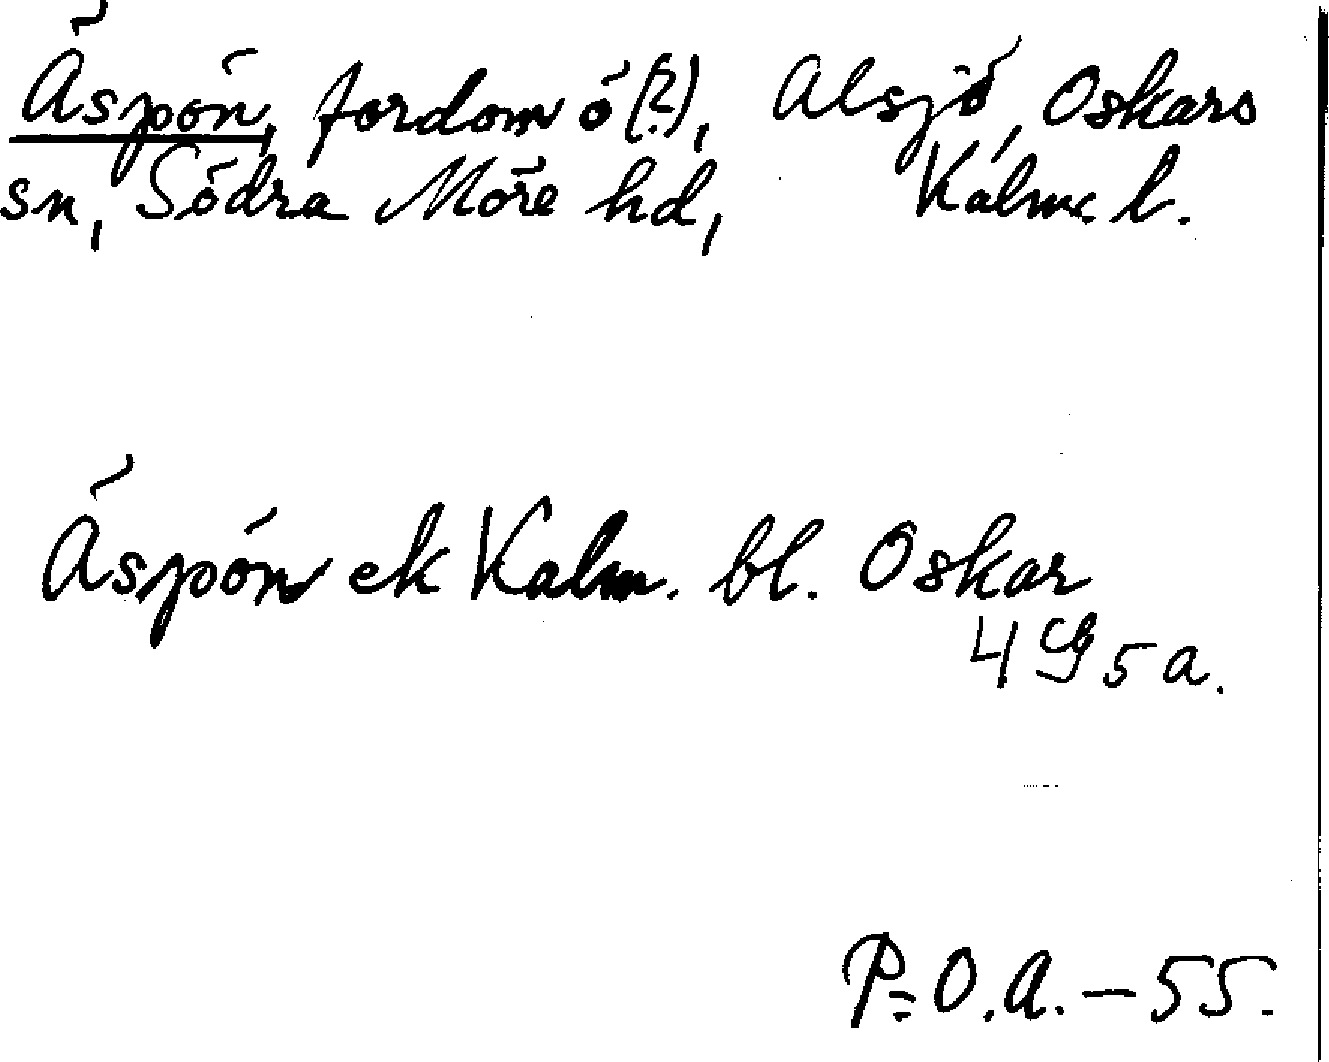 Äspön, fordom ö (?), Alsjö, Oskars
sn, Södra Möre hd, Kalma l.
Äspön ek Kalm. bl. Oskar
4 G 5 a.
P=O.A.-55.